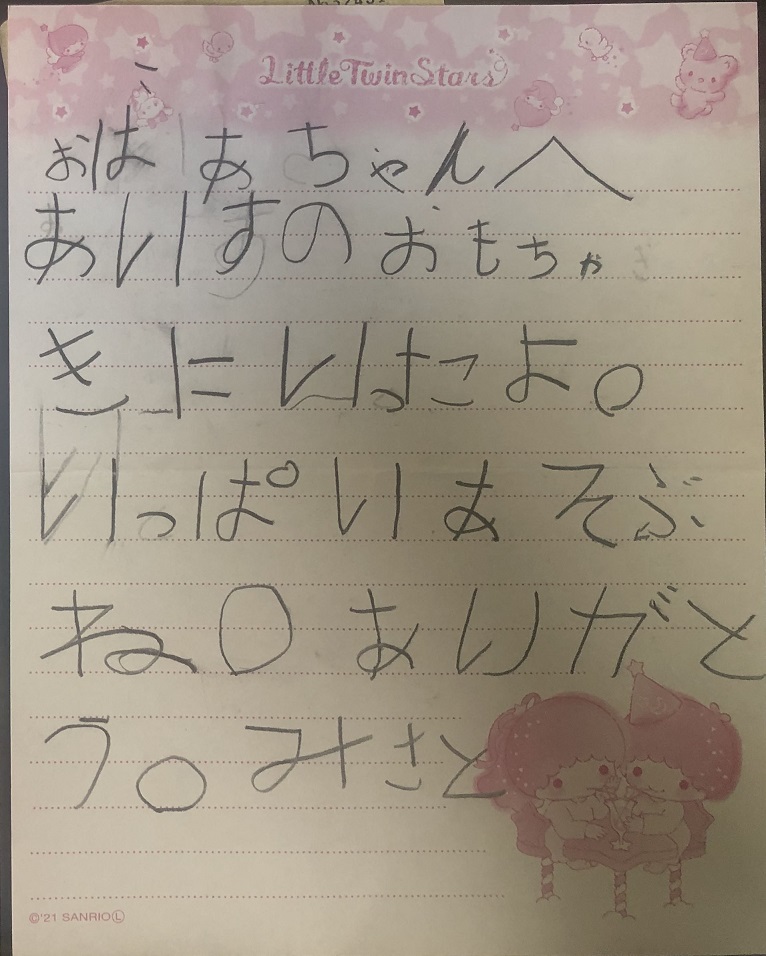 Little Twin Stars
おばあちゃんへ
あいすのおもちゃ
きにいったよ。
いっぱいあそぶ
ね。ありがと
う。みさと
©'21 SANRIO Ⓛ